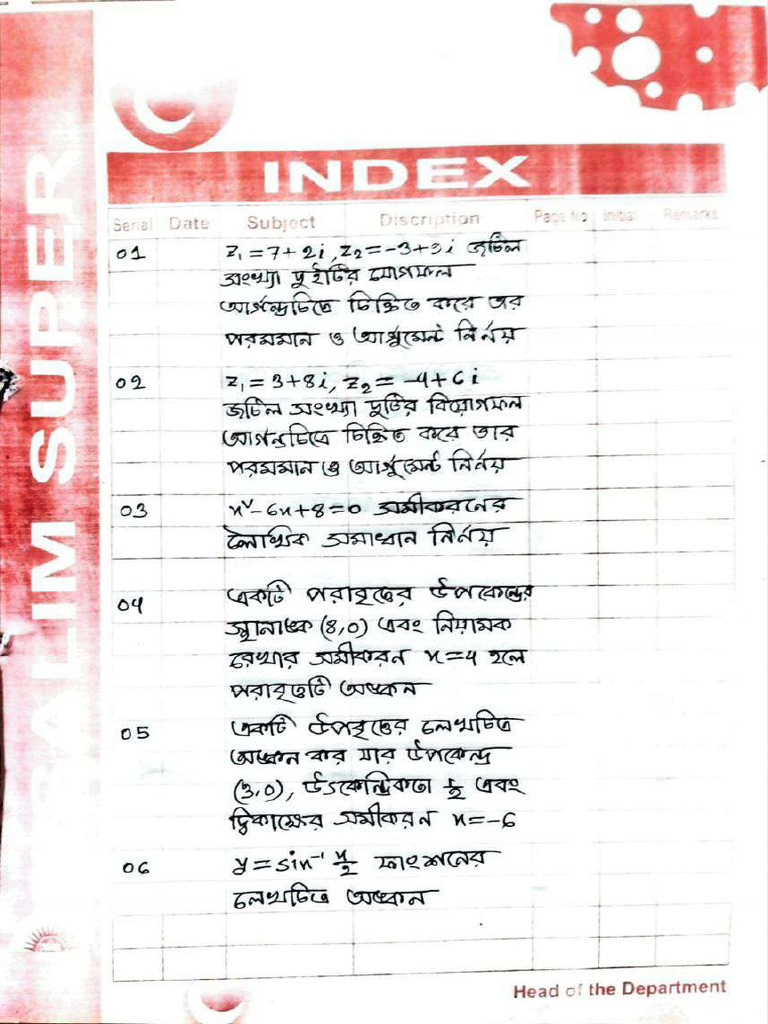 INDEX
Serial Date Subject Discription Page No Initial Remarks
SALIM SUPER
01 z₁ = 7 + 2i, z₂ = -3 + 3i জটিল
সংখ্যা দুইটির যোগফল
আর্গন্ডচিত্রে চিহ্নিত করে তার
পরমমান ও আর্গুমেন্ট নির্নয়
02 z₁ = 3 + 8i, z₂ = -4 + 6i
জটিল সংখ্যা দুটির বিয়োগফল
আর্গন্ডচিত্রে চিহ্নিত করে তার
পরমমান ও আর্গুমেন্ট নির্নয়
03 x² - 6x + 8 = 0 সমীকরনের
লৈখিক সমাধান নির্নয়
04 একটি পরাবৃত্তের উপকেন্দ্রের
স্থানাঙ্ক (8,0) এবং নিয়ামক
রেখার সমীকরন x = 4 হলে
পরাবৃত্তটি অঙ্কন
05 একটি উপবৃত্তের লেখচিত্র
অঙ্কন কর যার উপকেন্দ্র
(3,0), উৎকেন্দ্রিকতা ½ এবং
দ্বিকাক্ষের সমীকরন x = -6
06 y = sin⁻¹ x/2 ফাংশনের
লেখচিত্র অঙ্কন
Head of the Department